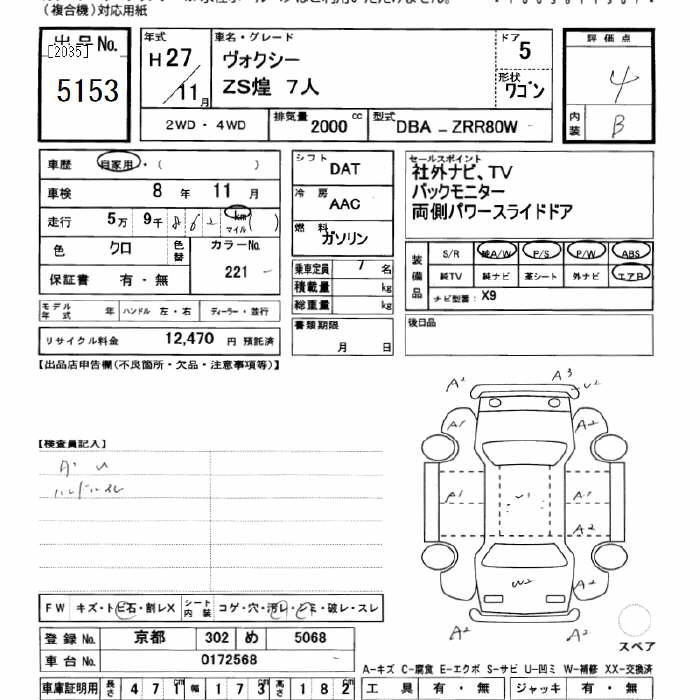 （複合機）対応用紙
出品No.
[2035]
5153
年式
H27
11月
車名・グレード
ヴォクシー
ZS煌 7人
ドア
5
形状
ワゴン
評価点
4
内装
B
2WD・4WD
排気量 2000 cc
型式 DBA - ZRR80W -
車歴 自家用・（ ）
車検 8 年 11 月
走行 5万 9千 8 6 km マイル（ ）
色 クロ 色替 カラーNo.
保証書 有・無 221 -
モデル年式 年 ハンドル 左・右 ディーラー・並行
リサイクル料金 12,470 円 預託済
シフト DAT
冷房 AAC
燃料 ガソリン
乗車定員 7 名
積載量 kg
総重量 kg
書類期限
月 日
セールスポイント
社外ナビ、TV
バックモニター
両側パワースライドドア
装備品
S/R 純A/W P/S P/W ABS
純TV 純ナビ 革シート 外ナビ エアB
ナビ型番: X9
後日品
【出品店申告欄(不良箇所・欠品・注意事項等)】
【検査員記入】
A・U
ハンドルスレ
A2 A3 U2
A1 A2
A1 U1 A1
A2
W2
A2
A2 A2
スペア
FW キズ・トビ石・割レX シート内装 コゲ・穴・汚レ・シミ・破レ・スレ
登録No. 京都 302 め 5068
車台No. 0172568
車庫証明用 長さ 471cm 幅 173cm 高さ 182cm
A-キズ C-腐食 E-エクボ S-サビ U-凹ミ W-補修 XX-交換済
工具 有・無 ジャッキ 有・無